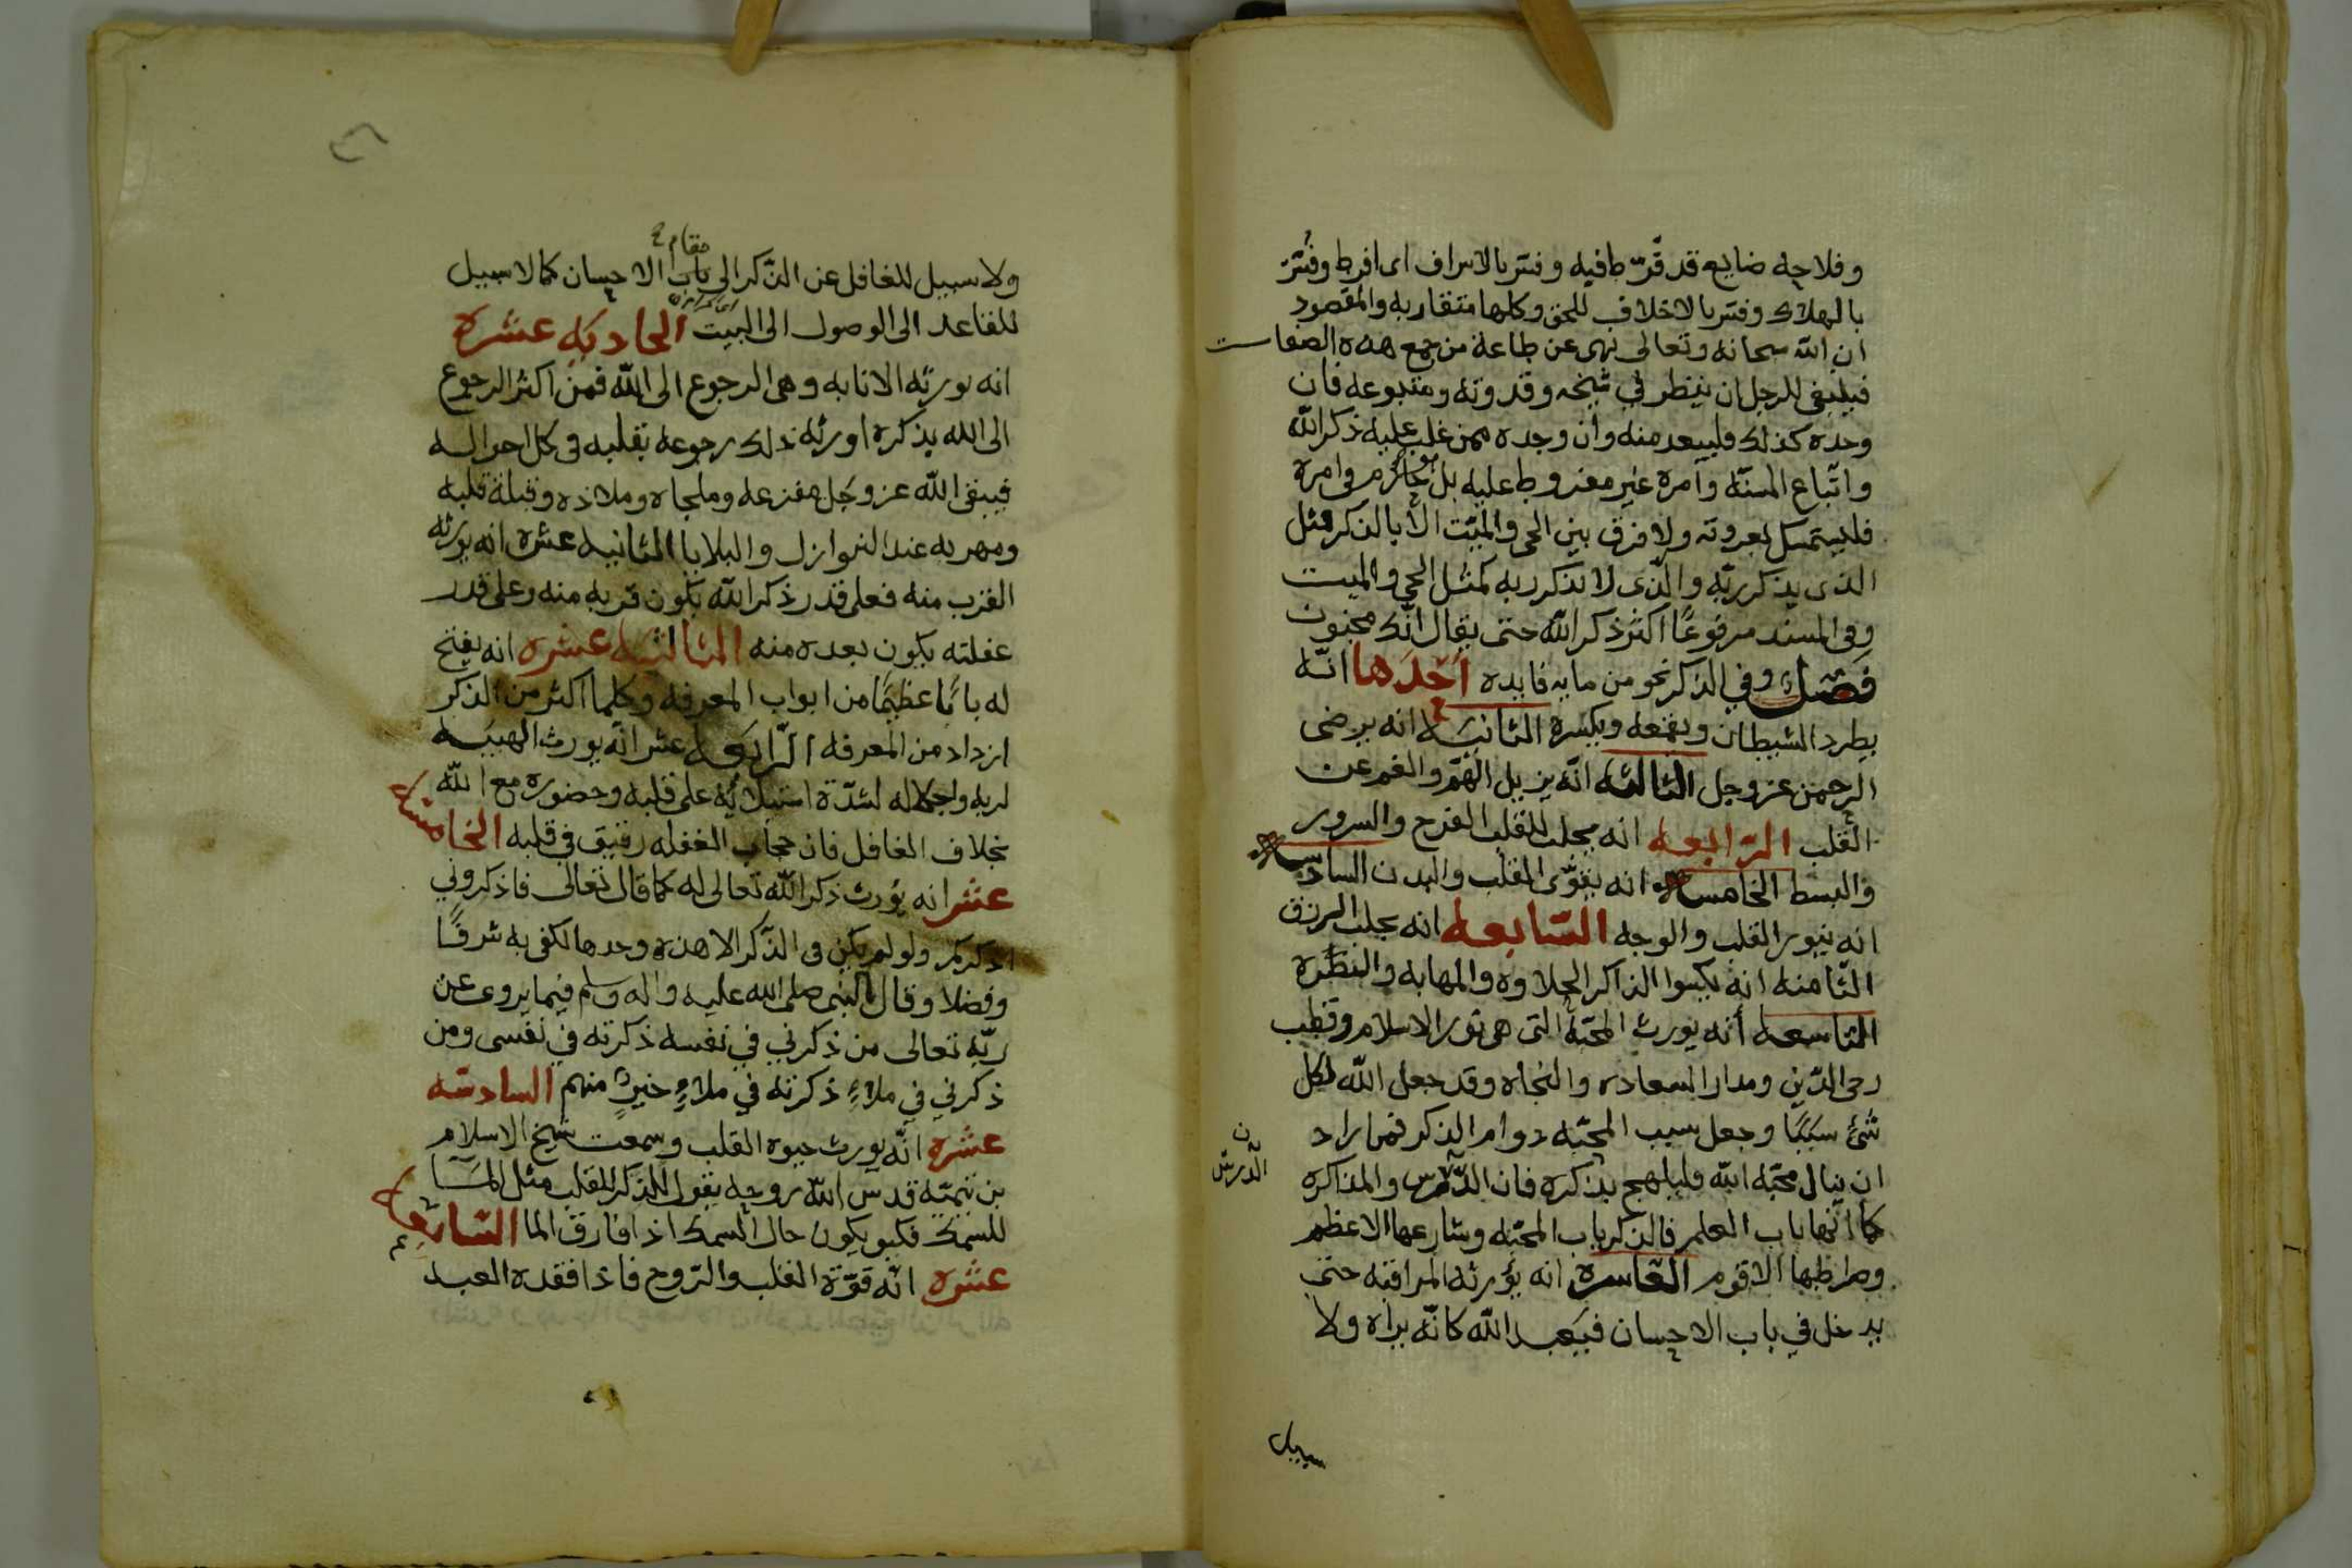 وفلاحه ضايع قد فرّط فيه وفسّر بالاسراف اي افرط وفسّر
بالهلاك وفسر بالاخلاف للحق وكلها متقاربه والمقصود
ان الله سبحانه وتعالى نهى عن طاعة من جمع هذه الصفات
فينبغي للرجل ان ينظر في شيخه وقدوته ومتبوعه فان
وجده كذلك فليبعد منه وان وجده ممن غلب عليه ذكر الله
واتّباع السنّه وامره غير مفروط عليه بل هو حازم في امره
فليستمسك بعروته ولا فرق بين الحي والميّت الا بالذكر فمثل
الذي يذكر ربّه والذّي لا يذكر ربه كمثل الحي والميت
وفي المسند مرفوعًا اكثر ذكر الله حتى يقال انّك مجنون
فصل وفي الذكر نحو من مايه فايده احدها انّه
يطرد الشيطان ويقمعه ويكسره الثانيه انه يرضى
الرحمن عز وجل الثالثه انّه يزيل الهمّ والغم عن
القلب الرّابعه انه يجلب للقلب الفرح والسرور
والبسط الخامسه انه يقوّى القلب والبدن السادسه
انه ينور القلب والوجه السّابعه انه يجلب الرزق
الثّامنه انه يكسوا الذاكر الحلاوه والمهابه والنظره
التاسعه أنه يورث المحبّة التي هي نور الاسلام وقطب
رحى الدّين ومدار السعاده والنجاه وقد جعل الله لكل
شئ سببًا وجعل سبب المحبّه دوام الذكر فمن اراد
ان ينال محبّه الله فليلهج بذكره فان الدّرس والمذاكره
ن
الدّرس
كما انّها باب العلم فالذكر باب المحبّه وشارعها الاعظم
وصراطها الاقوم العاشره انه يؤرثه المراقبه حتى
يدخل في باب الاحسان فيعبد الله كانّه يراه ولا
سبيل
مقام
ولا سبيل للغافل عن الذّكر الى باب الاحسان كما لا سبيل
للقاعد الى الوصول الى البيت الحاديه عشره
انه يورثه الانابه وهي الرجوع الى الله فمن اكثر الرجوع
الى الله بذكره اورثه ذلك رجوعه بقلبه في كل احواله
فيبقى الله عز وجل مفزعه وملجاه وملاذه وقبلة قلبه
ومهربه عند النوازل والبلايا الثانيه عشره انه يورثه
القرب منه فعلى قدر ذكر الله يكون قربه منه وعلى قدر
غفلته يكون بعده منه الثالثه عشره انه يفتح
له بابًا عظيمًا من ابواب المعرفه وكلما اكثر من الذكر
ازداد من المعرفه الرّابعه عشر انّه يورث الهيبه
لربه واجلاله لشدّة استيلائه على قلبه وحضوره مع الله
بخلاف الغافل فان حجاب الغفله رقيق في قلبه الخامسه
عشر انه يؤرث ذكر الله تعالى له كما قال تعالى فاذكروني
اذكركم ولو لم يكن في الذّكر الا هذه وحدها لكفى به شرفًا
وفضلا وقال النبي صلى الله عليه واله وسلم فيما يروي عن
ربّه تعالى من ذكرني في نفسه ذكرته في نفسي ومن
ذكرني في ملاءٍ ذكرته في ملاءٍ خيرٍ منهم السادسّه
عشره انّه يورث حيوه القلب وسمعت شيخ الاسلام
بن تيميّه قدس الله روحه يقول الذكر للقلب مثل المآ
للسمك فكيف يكون حال السمك اذا فارق الما السّابعه
عشره انّه قوّة القلب والرّوح فاذا فقده العبد